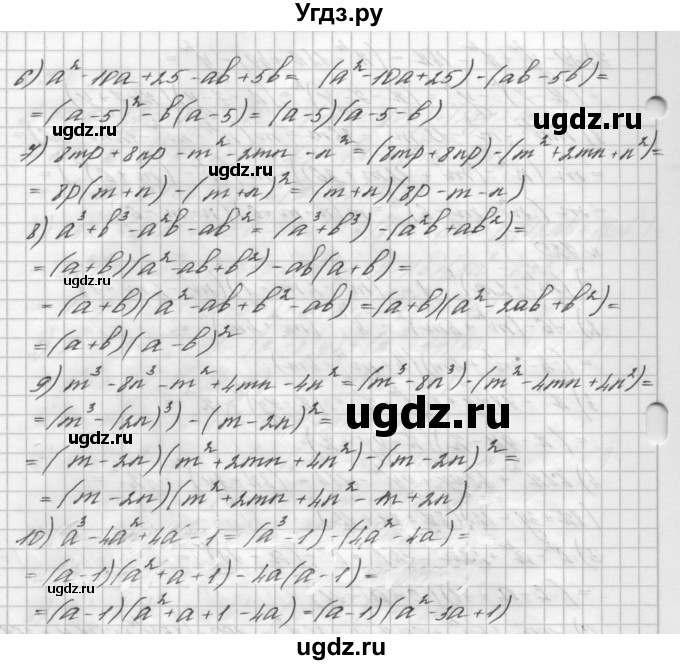 Угдз.ру
6) a² - 10a + 25 - ab + 5b = (a² - 10a + 25) - (ab - 5b) =
= (a - 5)² - b(a - 5) = (a - 5)(a - 5 - b)
ugdz.ru
7) 8mp + 8np - m² - 2mn - n² = (8mp + 8np) - (m² + 2mn + n²) =
ugdz.ru
= 8p(m + n) - (m + n)² = (m + n)(8p - m - n)
8) a³ + b³ - a²b - ab² = (a³ + b³) - (a²b + ab²) =
= (a + b)(a² - ab + b²) - ab(a + b) =
ugdz.ru
= (a + b)(a² - ab + b² - ab) = (a + b)(a² - 2ab + b²) =
= (a + b)(a - b)²
9) m³ - 8n³ - m² + 4mn - 4n² = (m³ - 8n³) - (m² - 4mn + 4n²) =
= (m³ - (2n)³) - (m - 2n)² =
ugdz.ru
ugdz.ru
= (m - 2n)(m² + 2mn + 4n²) - (m - 2n)² =
= (m - 2n)(m² + 2mn + 4n² - m + 2n)
10) a³ - 4a² + 4a - 1 = (a³ - 1) - (4a² - 4a) =
= (a - 1)(a² + a + 1) - 4a(a - 1) =
ugdz.ru
= (a - 1)(a² + a + 1 - 4a) = (a - 1)(a² - 3a + 1)
ugdz.ru